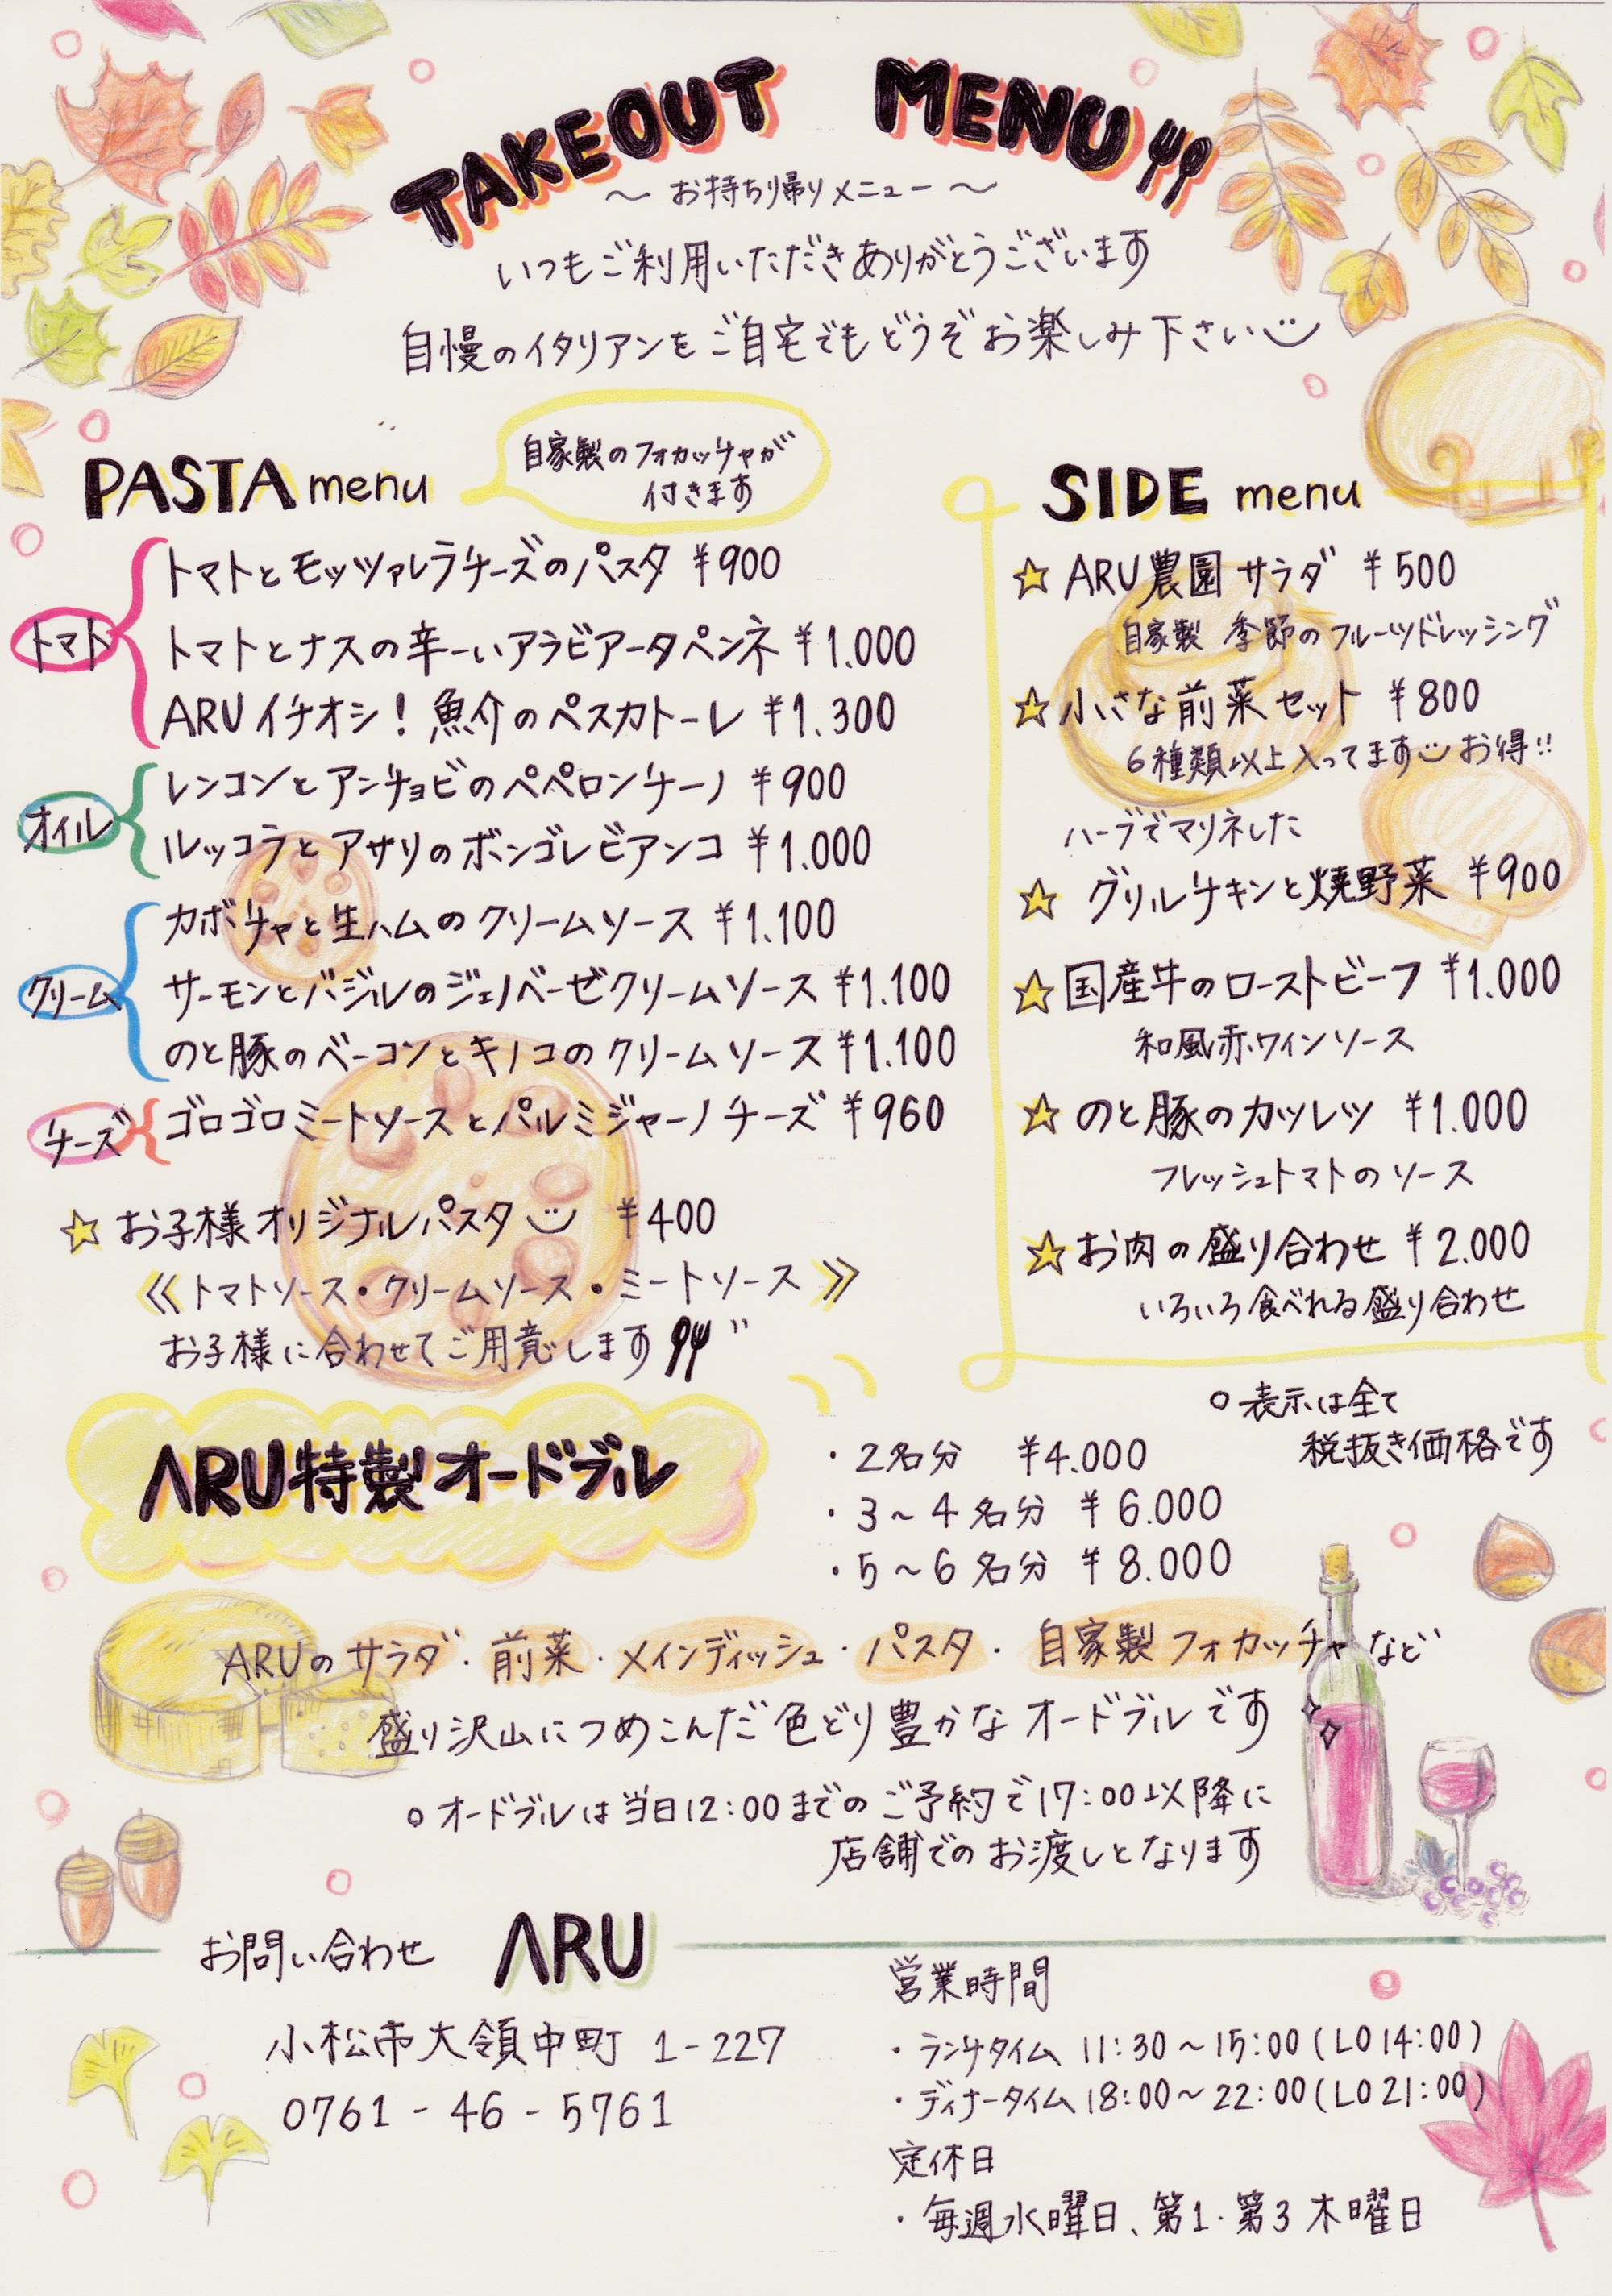 TAKEOUT MENU
～ お持ち帰りメニュー ～
いつもご利用いただきありがとうございます
自慢のイタリアンをご自宅でもどうぞお楽しみ下さい
PASTA menu
自家製のフォカッチャが
付きます
トマト
トマトとモッツァレラチーズのパスタ ¥900
トマトとナスの辛ーいアラビアータペンネ ¥1.000
ARUイチオシ! 魚介のペスカトーレ ¥1.300
オイル
レンコンとアンチョビのペペロンチーノ ¥900
ルッコラとアサリのボンゴレビアンコ ¥1.000
クリーム
カボチャと生ハムのクリームソース ¥1.100
サーモンとバジルのジェノベーゼクリームソース ¥1.100
のと豚のベーコンとキノコのクリームソース ¥1.100
チーズ
ゴロゴロミートソースとパルミジャーノチーズ ¥960
☆ お子様オリジナルパスタ ¥400
《トマトソース・クリームソース・ミートソース》
お子様に合わせてご用意します
SIDE menu
☆ ARU農園サラダ ¥500
自家製 季節のフルーツドレッシング
☆ 小さな前菜セット ¥800
6種類以上入ってます お得!!
ハーブでマリネした
☆ グリルチキンと焼野菜 ¥900
☆ 国産牛のローストビーフ ¥1.000
和風赤ワインソース
☆ のと豚のカツレツ ¥1.000
フレッシュトマトのソース
☆ お肉の盛り合わせ ¥2.000
いろいろ食べれる盛り合わせ
○ 表示は全て
税抜き価格です
ARU特製オードブル
・2名分 ¥4.000
・3～4名分 ¥6.000
・5～6名分 ¥8.000
ARUのサラダ・前菜・メインディッシュ・パスタ・自家製フォカッチャなど
盛り沢山につめこんだ色どり豊かなオードブルです
○ オードブルは当日12:00までのご予約で17:00以降に
店舗でのお渡しとなります
お問い合わせ ARU
小松市大領中町 1-227
0761-46-5761
営業時間
・ランチタイム 11:30～15:00(LO 14:00)
・ディナータイム 18:00～22:00(LO 21:00)
定休日
・毎週水曜日、第1・第3木曜日